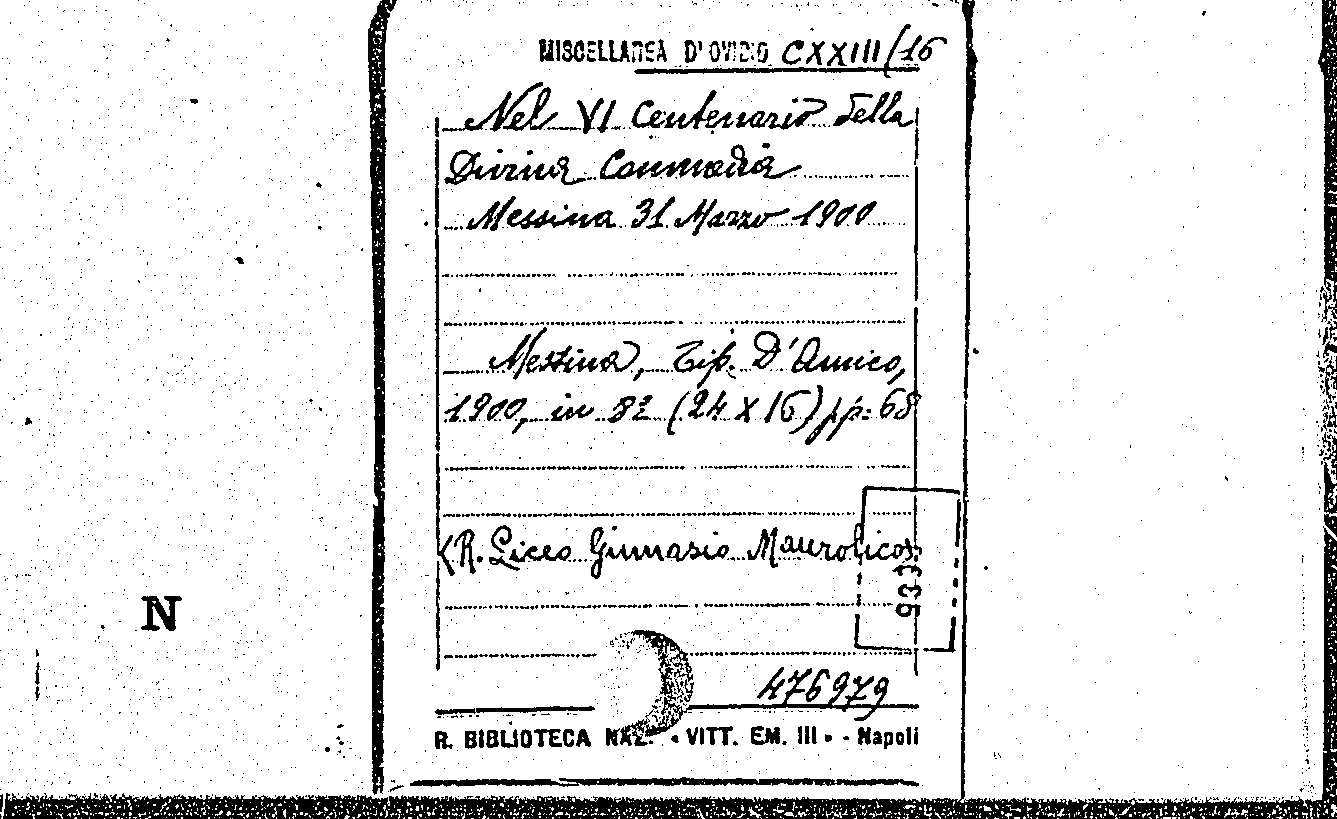 MISCELLANEA D'OVIDIO CXXIII/16
Nel VI Centenario della
Divina Commedia
Messina 31 Marzo 1900
Messina, Tip. D'Amico,
1900, in 8º (24 X 16) pp. 68
(R. Liceo Ginnasio Maurolico)
933
N
476979
R. BIBLIOTECA NAZ. «VITT. EM. III» - Napoli